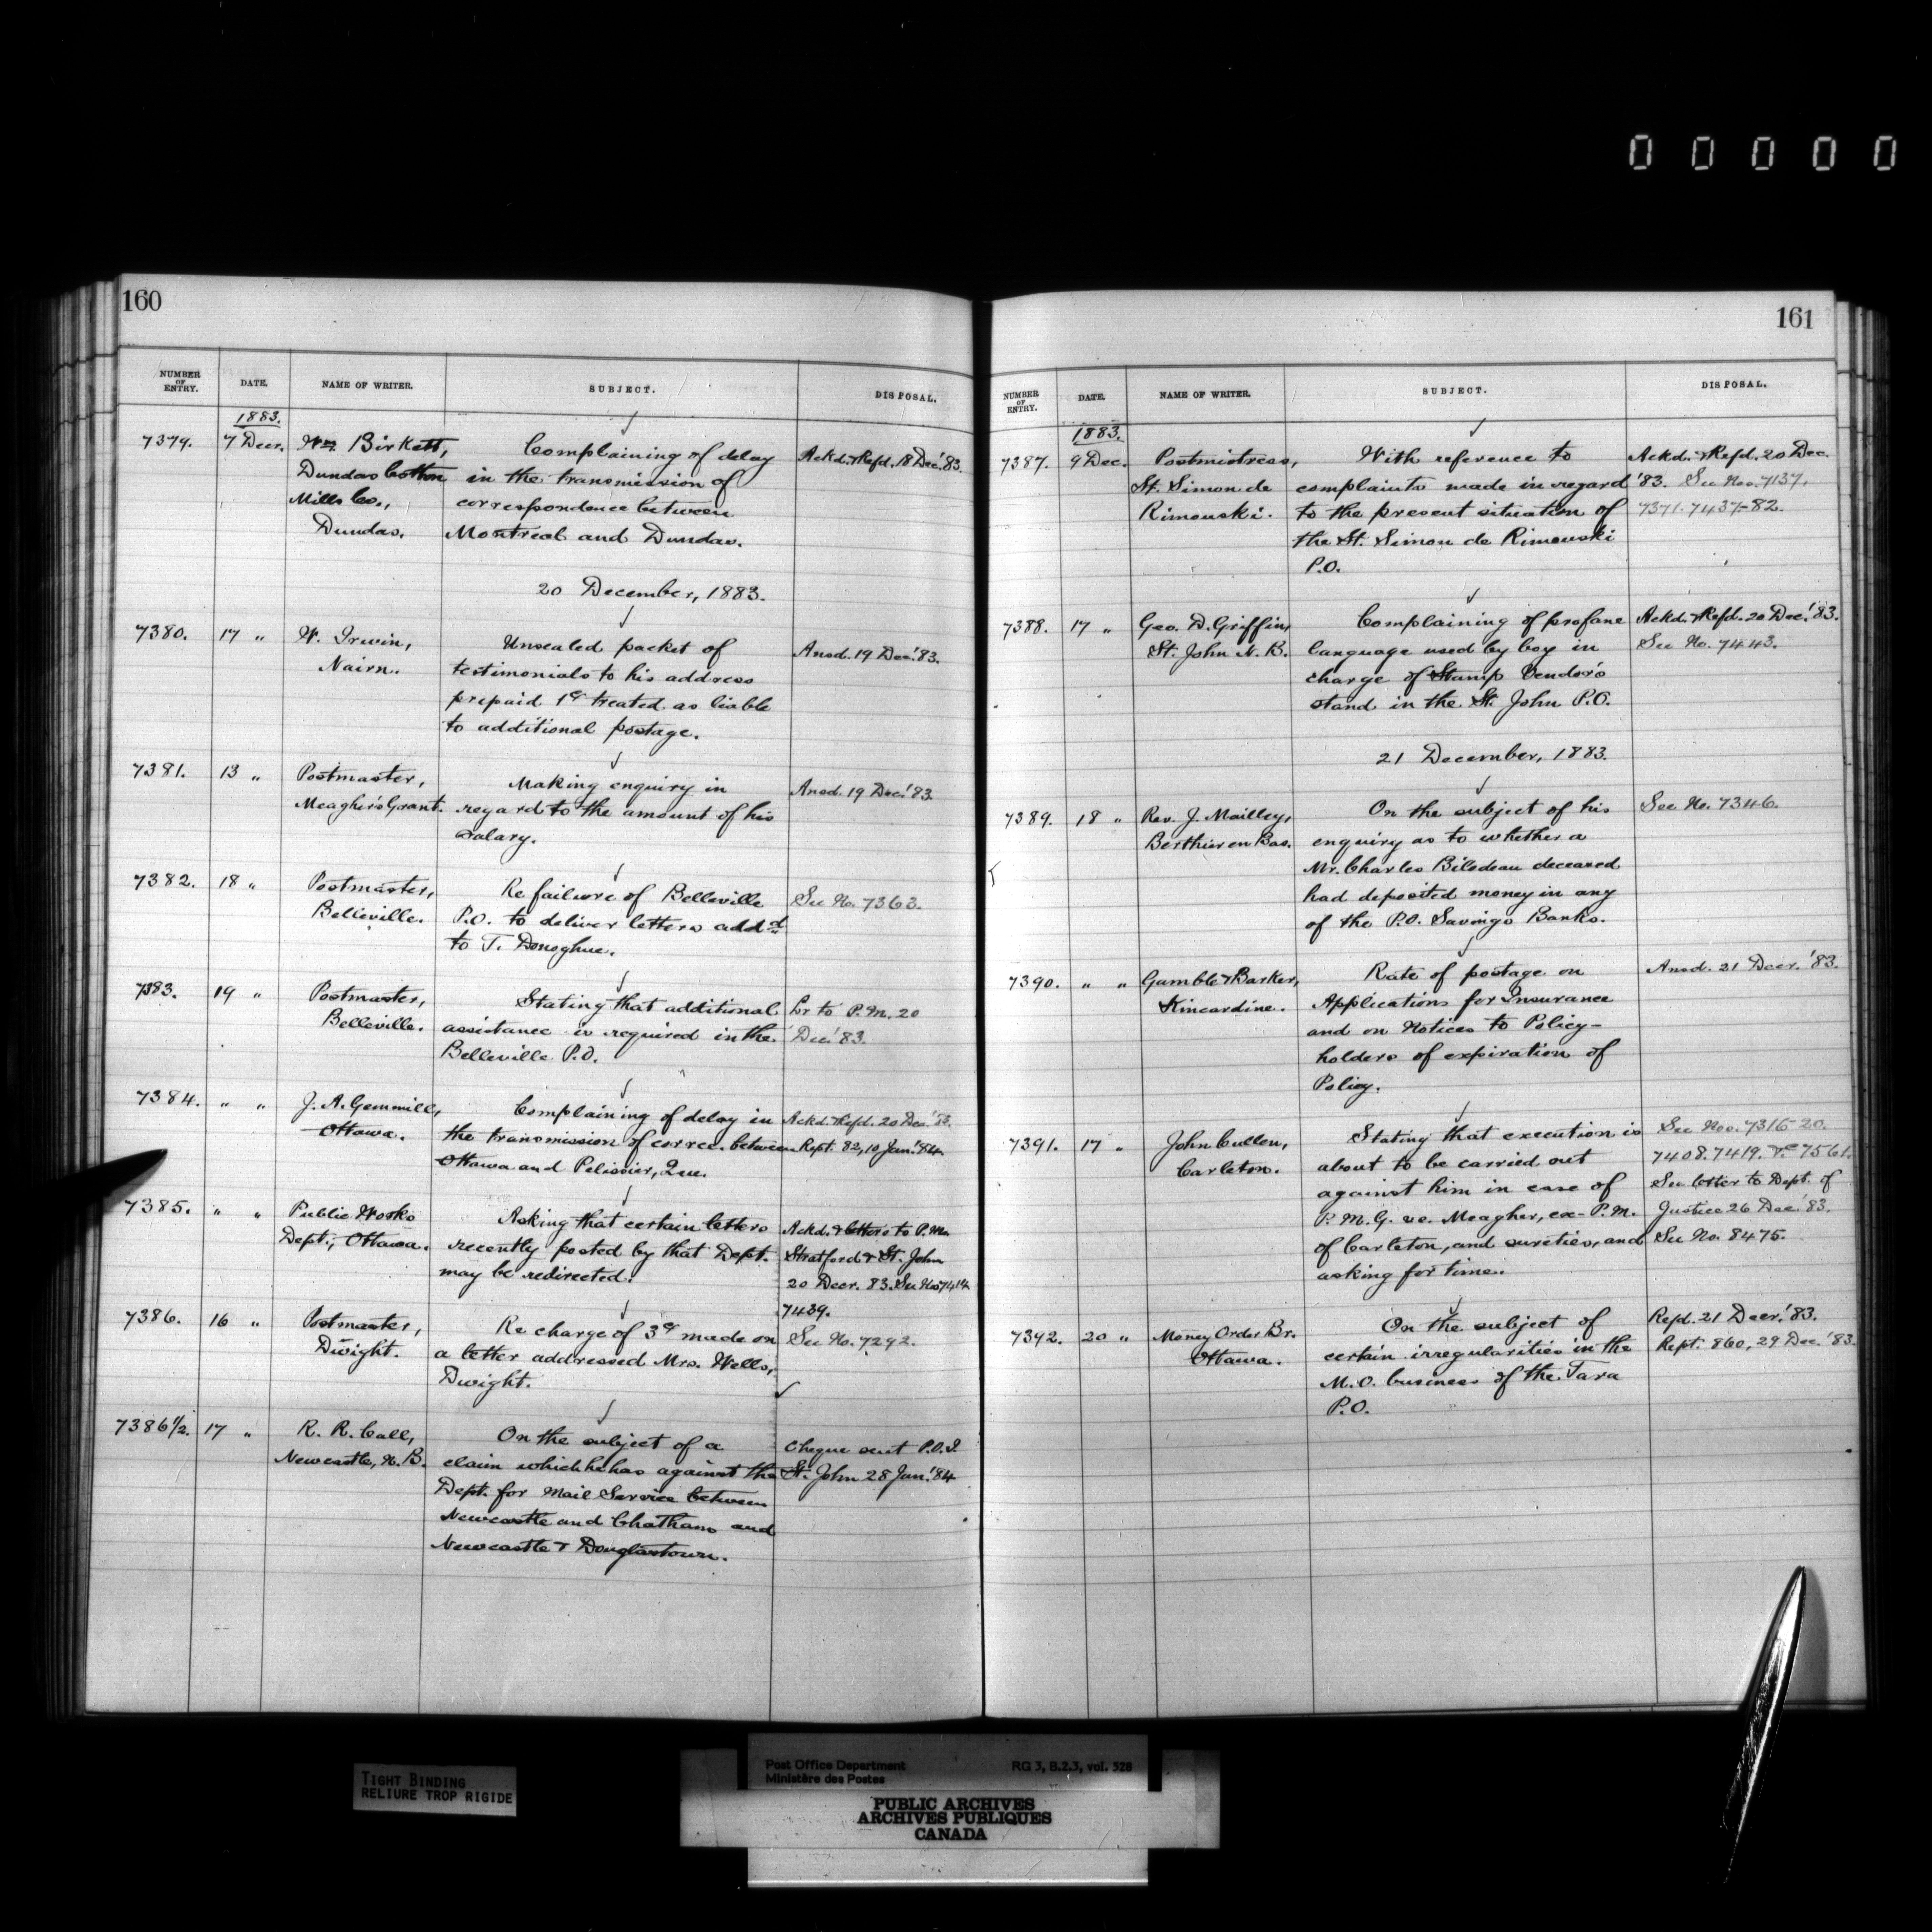 0 0 0 0 0
160
NUMBER OF ENTRY. DATE. NAME OF WRITER. SUBJECT. DISPOSAL.
1883.
7379. 7 Decr. Wm. Birkett, Complaining of delay Ackd. & Refd. 18 Dec. '83.
Dundas Cotton in the transmission of
Mills Co., correspondence between
Dundas. Montreal and Dundas.
20 December, 1883.
7380. 17 " W. Irwin, Unsealed packet of Ansd. 19 Dec. '83.
Nairn. testimonials to his address
prepaid 1c treated as liable
to additional postage.
7381. 13 " Postmaster, Making enquiry in Ansd. 19 Dec. '83.
Meagher's Grant. regard to the amount of his
salary.
7382. 18 " Postmaster, Re failure of Belleville See No. 7363.
Belleville. P.O. to deliver letters addd
to T. Donoghue.
7383. 19 " Postmaster, Stating that additional Lr to P.M. 20
Belleville. assistance is required in the Dec. '83.
Belleville P.O.
7384. " " J. A. Gemmill, Complaining of delay in Ackd. & Refd. 20 Dec. '83.
Ottawa. the transmission of corres. between Rept. 82, 10 Jan. '84.
Ottawa and Pelissier, Que.
7385. " " Public Works Asking that certain letters Ackd. & letters to P.Ms.
Dept., Ottawa. recently posted by that Dept. Stratford & St. John
may be redirected. 20 Decr. 83. See Nos 7414
7439.
7386. 16 " Postmaster, Re charge of 3c made on See No. 7292.
Dwight. a letter addressed Mrs. Wells,
Dwight.
7386 1/2. 17 " R. R. Call, On the subject of a Cheque sent P.O.I.
Newcastle, N.B. claim which he has against the St. John 28 Jan. '84
Dept. for Mail Service between
Newcastle and Chatham and
Newcastle & Douglastown.
161
NUMBER OF ENTRY. DATE. NAME OF WRITER. SUBJECT. DISPOSAL.
1883.
7387. 9 Dec. Postmistress, With reference to Ackd. & Refd. 20 Dec.
St. Simon de complaints made in regard '83. See Nos. 7137,
Rimouski. to the present situation of 7371. 7437-82.
the St. Simon de Rimouski
P.O.
7388. 17 " Geo. D. Griffin, Complaining of profane Ackd. & Refd. 20 Dec. '83.
St. John N.B. language used by boy in See No. 7443.
charge of Stamp Vendor's
stand in the St. John P.O.
21 December, 1883.
7389. 18 " Rev. J. Mailley, On the subject of his See No. 7346.
Berthier en Bas. enquiry as to whether a
Mr. Charles Bilodeau deceased
had deposited money in any
of the P.O. Savings Banks.
7390. " " Gamble & Barker, Rate of postage on Ansd. 21 Decr. '83.
Kincardine. Applications for Insurance
and on Notices to Policy-
holders of expiration of
Policy.
7391. 17 " John Cullen, Stating that execution is See Nos. 7316-20.
Carleton. about to be carried out 7408. 7419. &c 7561.
against him in case of See letter to Dept. of
P.M.G. vs. Meagher, ex-P.M. Justice 26 Dec. '83.
of Carleton, and sureties, and See No. 8475.
asking for time.
7392. 20 " Money Order Br. On the subject of Refd. 21 Decr. '83.
Ottawa. certain irregularities in the Rept. 860, 29 Dec. '83.
M.O. business of the Tara
P.O.
TIGHT BINDING
RELIURE TROP RIGIDE
Post Office Department RG 3, B.2.3, vol. 528
Ministère des Postes
PUBLIC ARCHIVES
ARCHIVES PUBLIQUES
CANADA